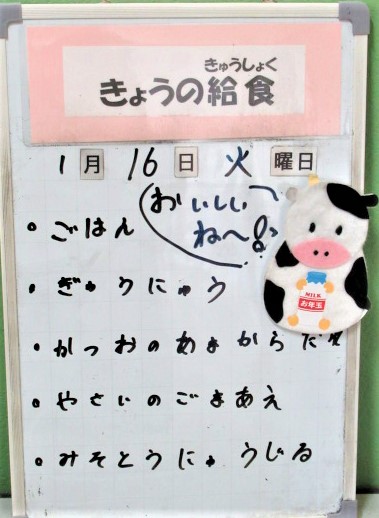 きゅうしょく
きょうの給食
1月 16日 火曜日
おいしい
ね〜
・ごはん
・ぎゅうにゅう
・かつおのあまからだれ
・やさいのごまあえ
・みそとうにゅうじる
MILK
お年玉